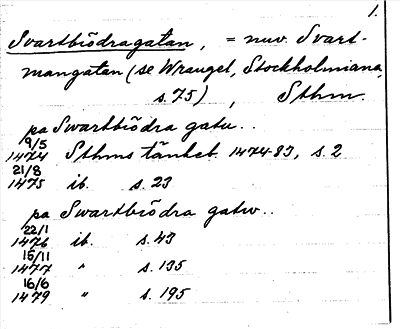 1.
Svartbrödragatan, = nuv. Svart-
mangatan (se Wrangel, Stockholmiana,
s. 75), Sthm.
pa Swartbrödra gatu..
9/5
1474 Sthms tänkeb. 1474-83, s. 2
21/8
1475 ib. s. 23
pa Swartbrödra gatw..
22/1
1476 ib. s. 43
15/11
1477 " s. 135
16/6
1479 " s. 195